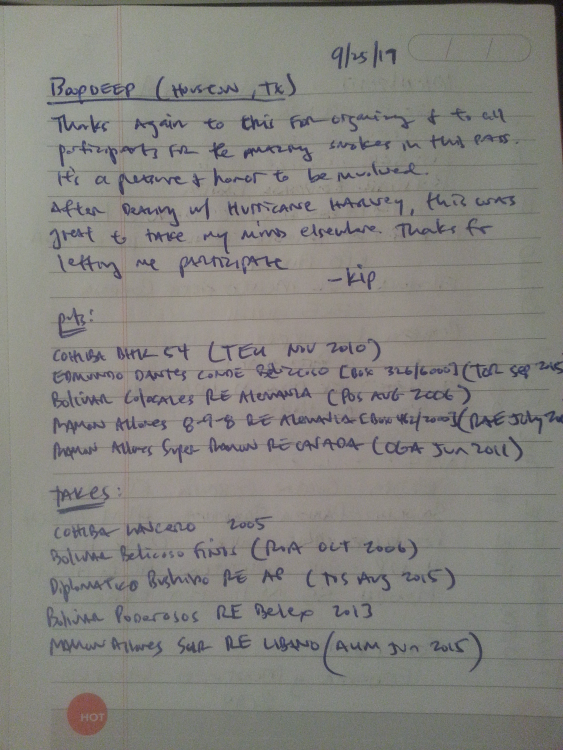 9/25/17
BoopDEEP (Houston, TX)
Thanks Again to this For organizing & to all
participants for the amazing smokes in this PASS.
It's a pleasure & honor to be involved.
After Dealing w/ HURRICANE HARVEY, this was
great to take my mind elsewhere. Thanks for
letting me PARTICIPATE
-Kip
puts:
COHIBA BHK 54 (TEU NOV 2010)
EDMUNDO DANTES CONDE BELICOSO [BOX 326/6000] (Sep 2015
Bolivar Colosales RE Alemania (POS AUG 2006)
RAMON Allones 8-9-8 RE Alemania [BOX 462/2000] (RAE July 20
RAMON Allones Super Ramon RE CANADA (OGA Jun 2011)
TAKES:
COHIBA LANCERO 2005
Bolivar Belicoso Finos (OCT 2006)
Diplomatico Bushido RE AP (Aug 2015)
Bolivar Poderosos RE Belux 2013
RAMON Allones Sur RE LIBANO (AUM Jun 2015)
HOT